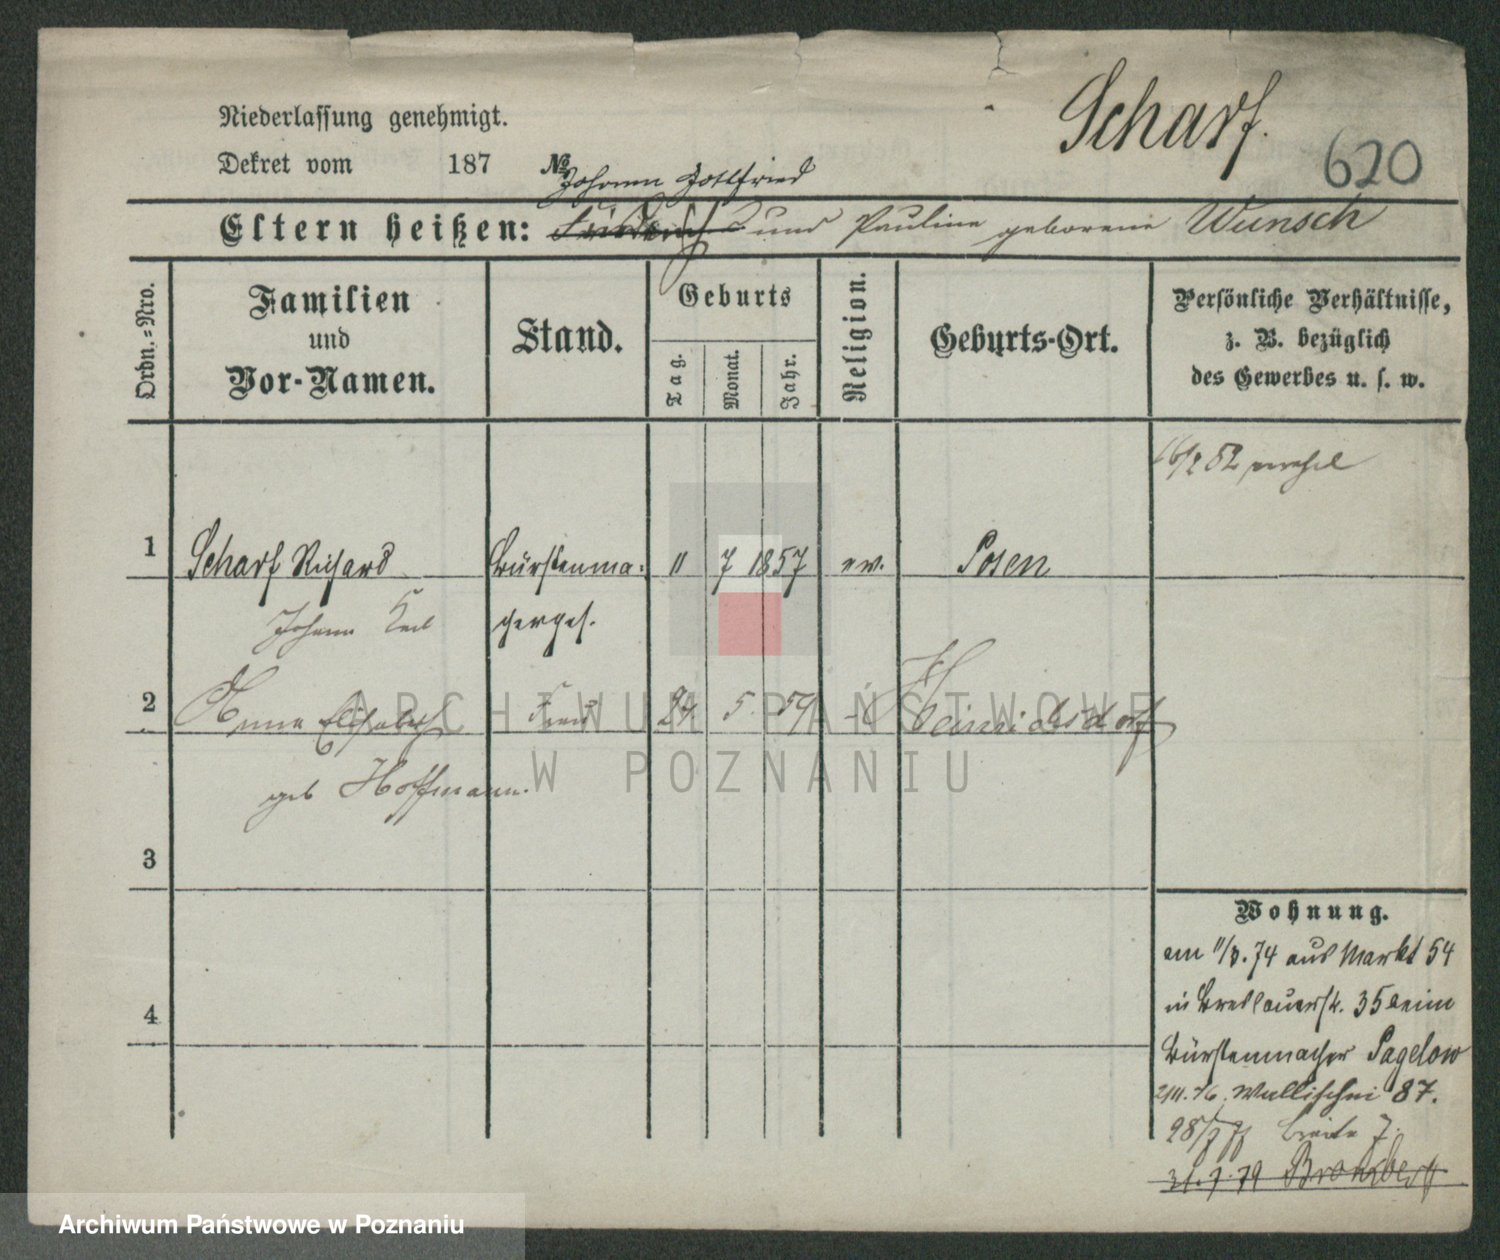 Scharf.
620
Niederlassung genehmigt.
Dekret vom 187 №
Johann Gottfried
Eltern heißen: Friedrich und Pauline geborene Wunsch
Ordn.-Nro.
Familien
und
Vor-Namen.
Stand.
Geburts
Tag.
Monat.
Jahr.
Religion.
Geburts-Ort.
Persönliche Verhältnisse,
z. B. bezüglich
des Gewerbes u. s. w.
1 Scharf Richard Bürstenma- 11 7 1857 ev. Posen
Johann Carl
gerges.
2 Anna Elisabeth Frau 24. 5. 59 Heinrichsdorf
geb Hoffmann.
3
4
Wohnung.
am 11/8.74 aus Markt 54
in Breslauerstr. 35 beim
Bürstenmacher Pagelow
Wallischei 87.
Breite 7.
31.7.79 Bromberg
ARCHIWUM PAŃSTWOWE
W POZNANIU
Archiwum Państwowe w Poznaniu